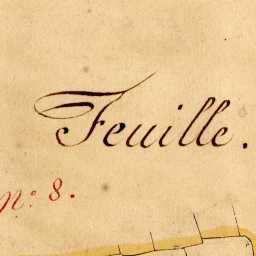 Feuille.
n.º 8.